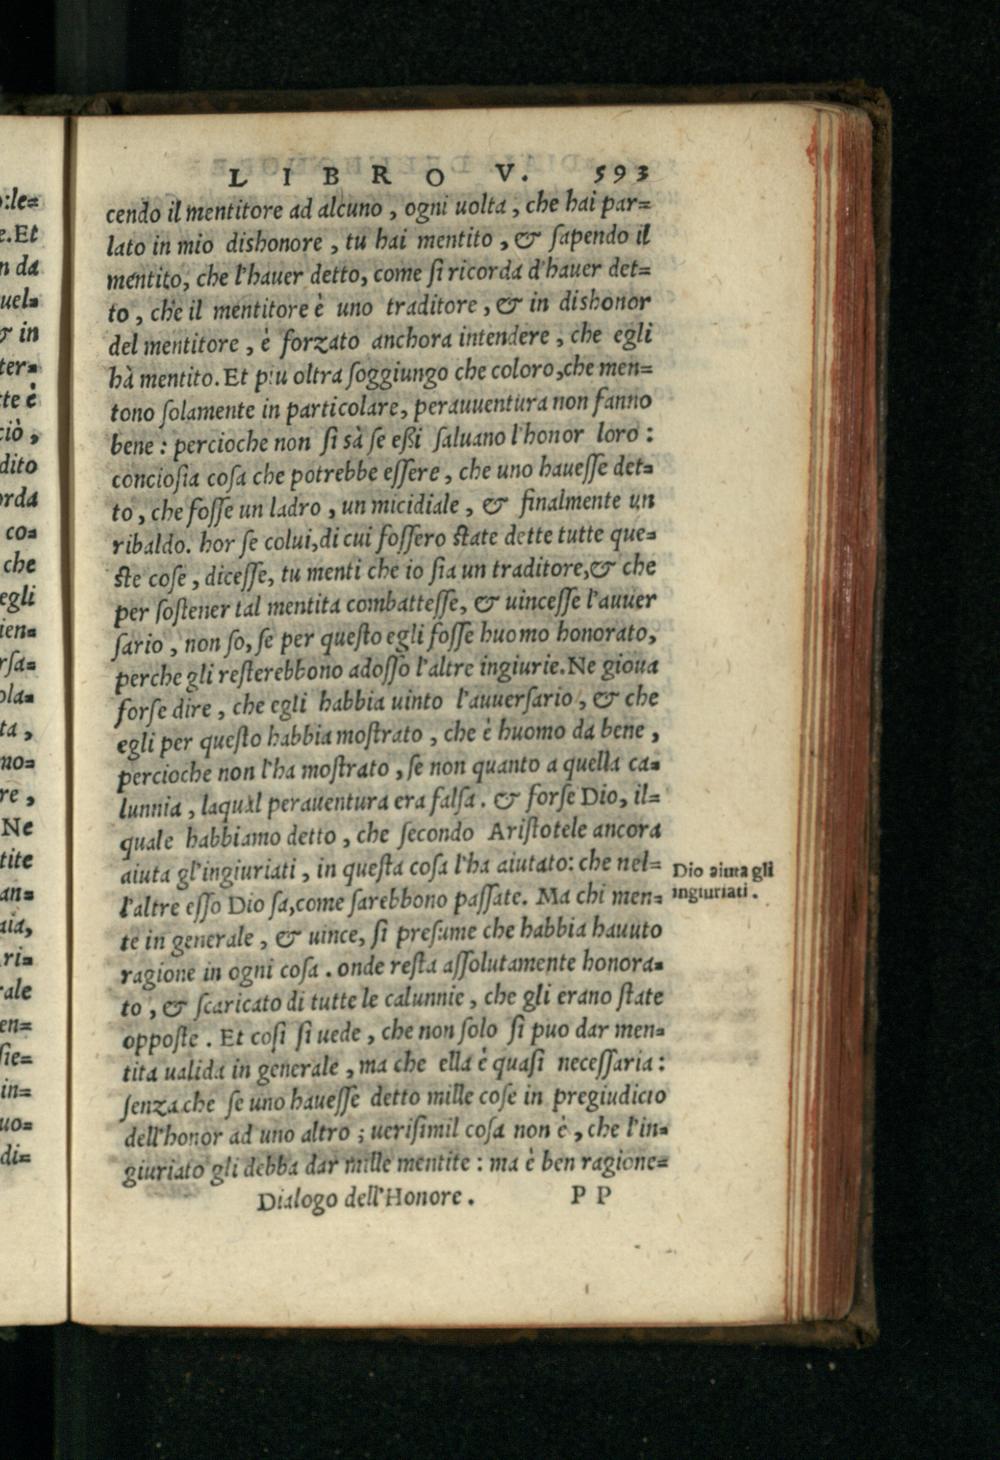 LIBRO V. 593
cendo il mentitore ad alcuno, ogni uolta, che hai par=
lato in mio dishonore, tu hai mentito, & ſapendo il
mentito, che l'hauer detto, come ſi ricorda d'hauer det=
to, che il mentitore è uno traditore, & in dishonor
del mentitore, è forzato anchora intendere, che egli
hà mentito. Et piu oltra ſoggiungo che coloro, che men=
tono ſolamente in particolare, perauuentura non fanno
bene: percioche non ſi sà ſe eßi ſaluano l'honor loro:
concioſia coſa che potrebbe eſſere, che uno haueſſe det=
to, che foſſe un ladro, un micidiale, & finalmente un
ribaldo. hor ſe colui, di cui foſſero ſtate dette tutte que=
ſte coſe, diceſſe, tu menti che io ſia un traditore, & che
per ſoſtener tal mentita combatteſſe, & uinceſſe l'auuer
ſario, non ſo, ſe per queſto egli foſſe huomo honorato,
perche gli reſterebbono adoſſo l'altre ingiurie. Ne gioua
forſe dire, che egli habbia uinto l'auuerſario, & che
egli per queſto habbia moſtrato, che è huomo da bene,
percioche non l'ha moſtrato, ſe non quanto a quella ca=
lunnia, laqual perauentura era falſa. & forſe Dio, il=
quale habbiamo detto, che ſecondo Ariſtotele ancora
aiuta gl'ingiuriati, in queſta coſa l'ha aiutato: che nel=
l'altre eſſo Dio ſa, come ſarebbono paſſate. Ma chi men=
te in generale, & uince, ſi preſume che habbia hauuto
ragione in ogni coſa. onde reſta aſſolutamente honora=
to, & ſcaricato di tutte le calunnie, che gli erano ſtate
oppoſte. Et coſi ſi uede, che non ſolo ſi puo dar men=
tita ualida in generale, ma che ella è quaſi neceſſaria:
ſenza che ſe uno haueſſe detto mille coſe in pregiudicio
dell'honor ad uno altro; ueriſimil coſa non è, che l'in=
giuriato gli debba dar mille mentite: ma è ben ragione=
Dialogo dell'Honore. PP
Dio aiuta gli
ingiuriati.
:le=
e. Et
n da
uel=
& in
ter=
te è
ciò,
dito
orda
co=
che
egli
ien=
rſa=
ola=
ta,
mo=
re,
Ne
tite
an=
aia,
ri=
rale
en=
ſie=
in=
uo=
di=